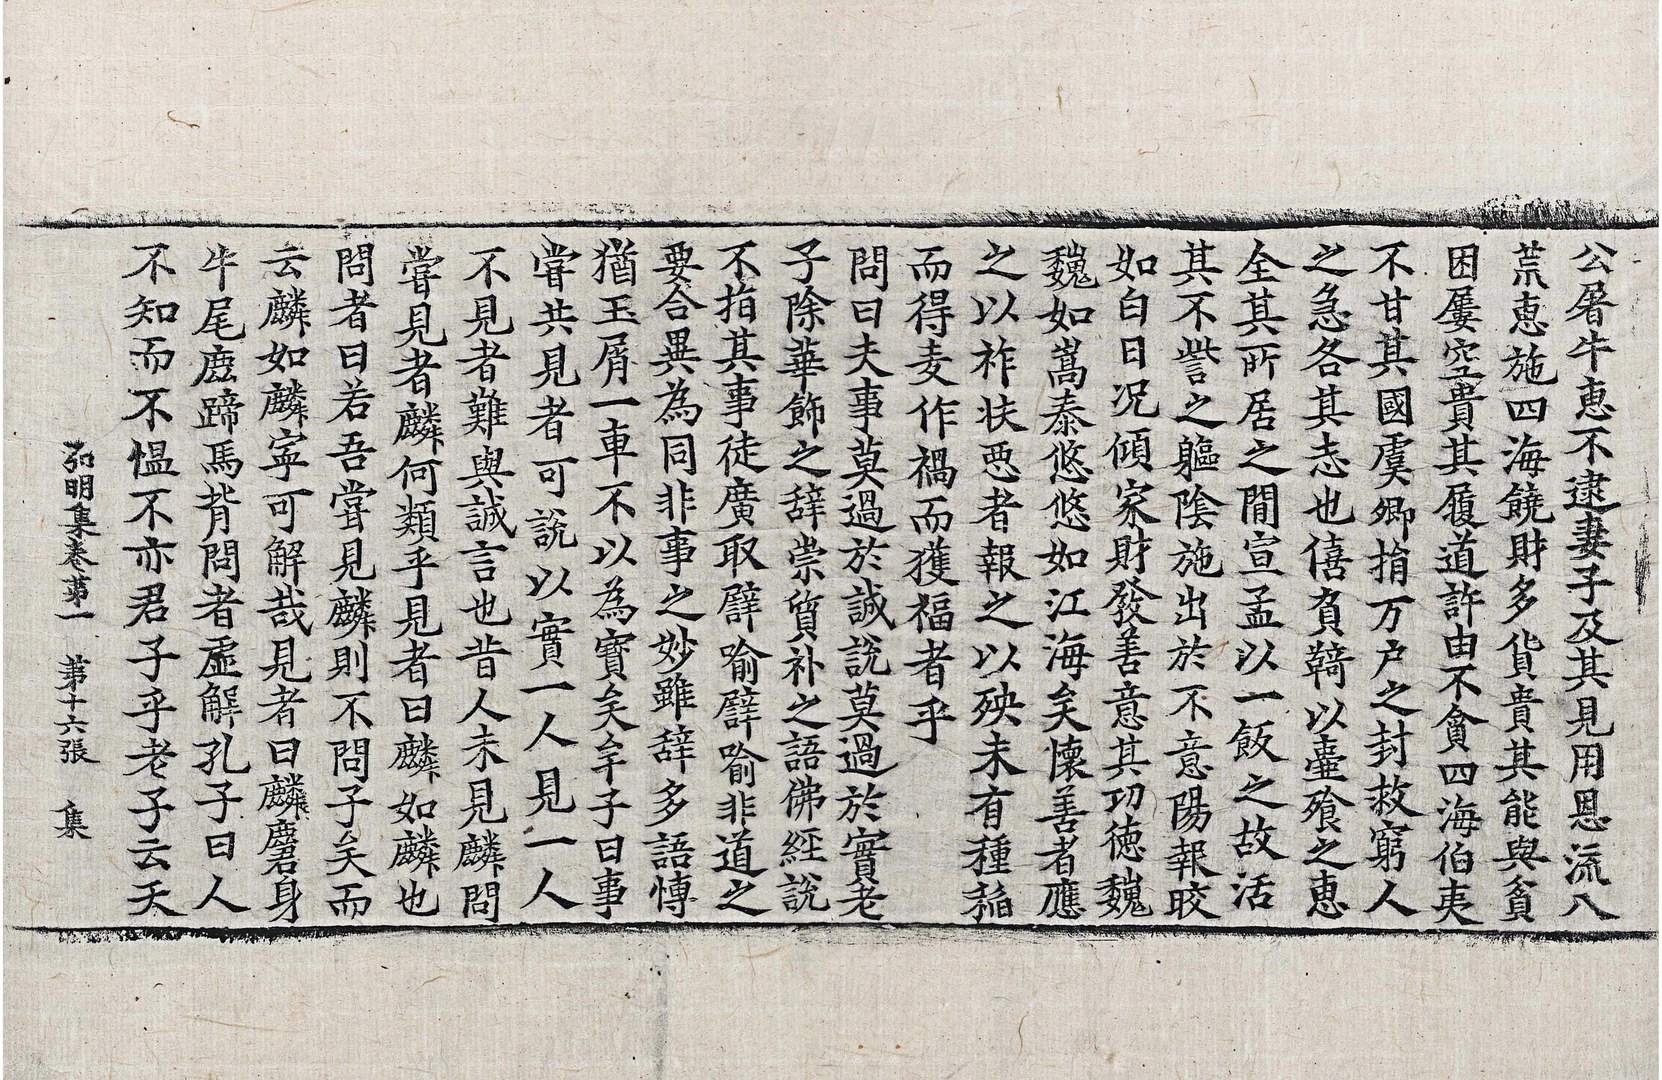 公屠牛惠不逮妻子及其見用恩流八
荒惠施四海饒財多貨貴其能與貧
困屢空貴其履道許由不貪四海伯夷
不甘其國虞卿捐万户之封救窮人
之急各其志也僖負䩭以壷飱之惠
全其所居之閒宣孟以一飯之故活
其不訾之軀陰施出於不意陽報皎
如白日况傾家財發善意其功德魏
魏如嵩泰悠悠如江海矣懷善者應
之以祚挾惡者報之以殃未有種稻
而得麦作禍而獲福者乎
問曰夫事莫過於誠說莫過於實老
子除華飾之辞崇質朴之語佛經說
不指其事徒廣取譬喻譬喻非道之
要合異為同非事之妙雖辞多語愽
猶玉屑一車不以為寶矣牟子曰事
嘗共見者可說以實一人見一人
不見者難與誠言也昔人未見麟問
嘗見者麟何類乎見者曰麟如麟也
問者曰若吾嘗見麟則不問子矣而
云麟如麟寧可解哉見者曰麟麏身
牛尾鹿蹄馬背問者虛解孔子曰人
不知而不愠不亦君子乎老子云天
弘明集卷第一 第十六張 集